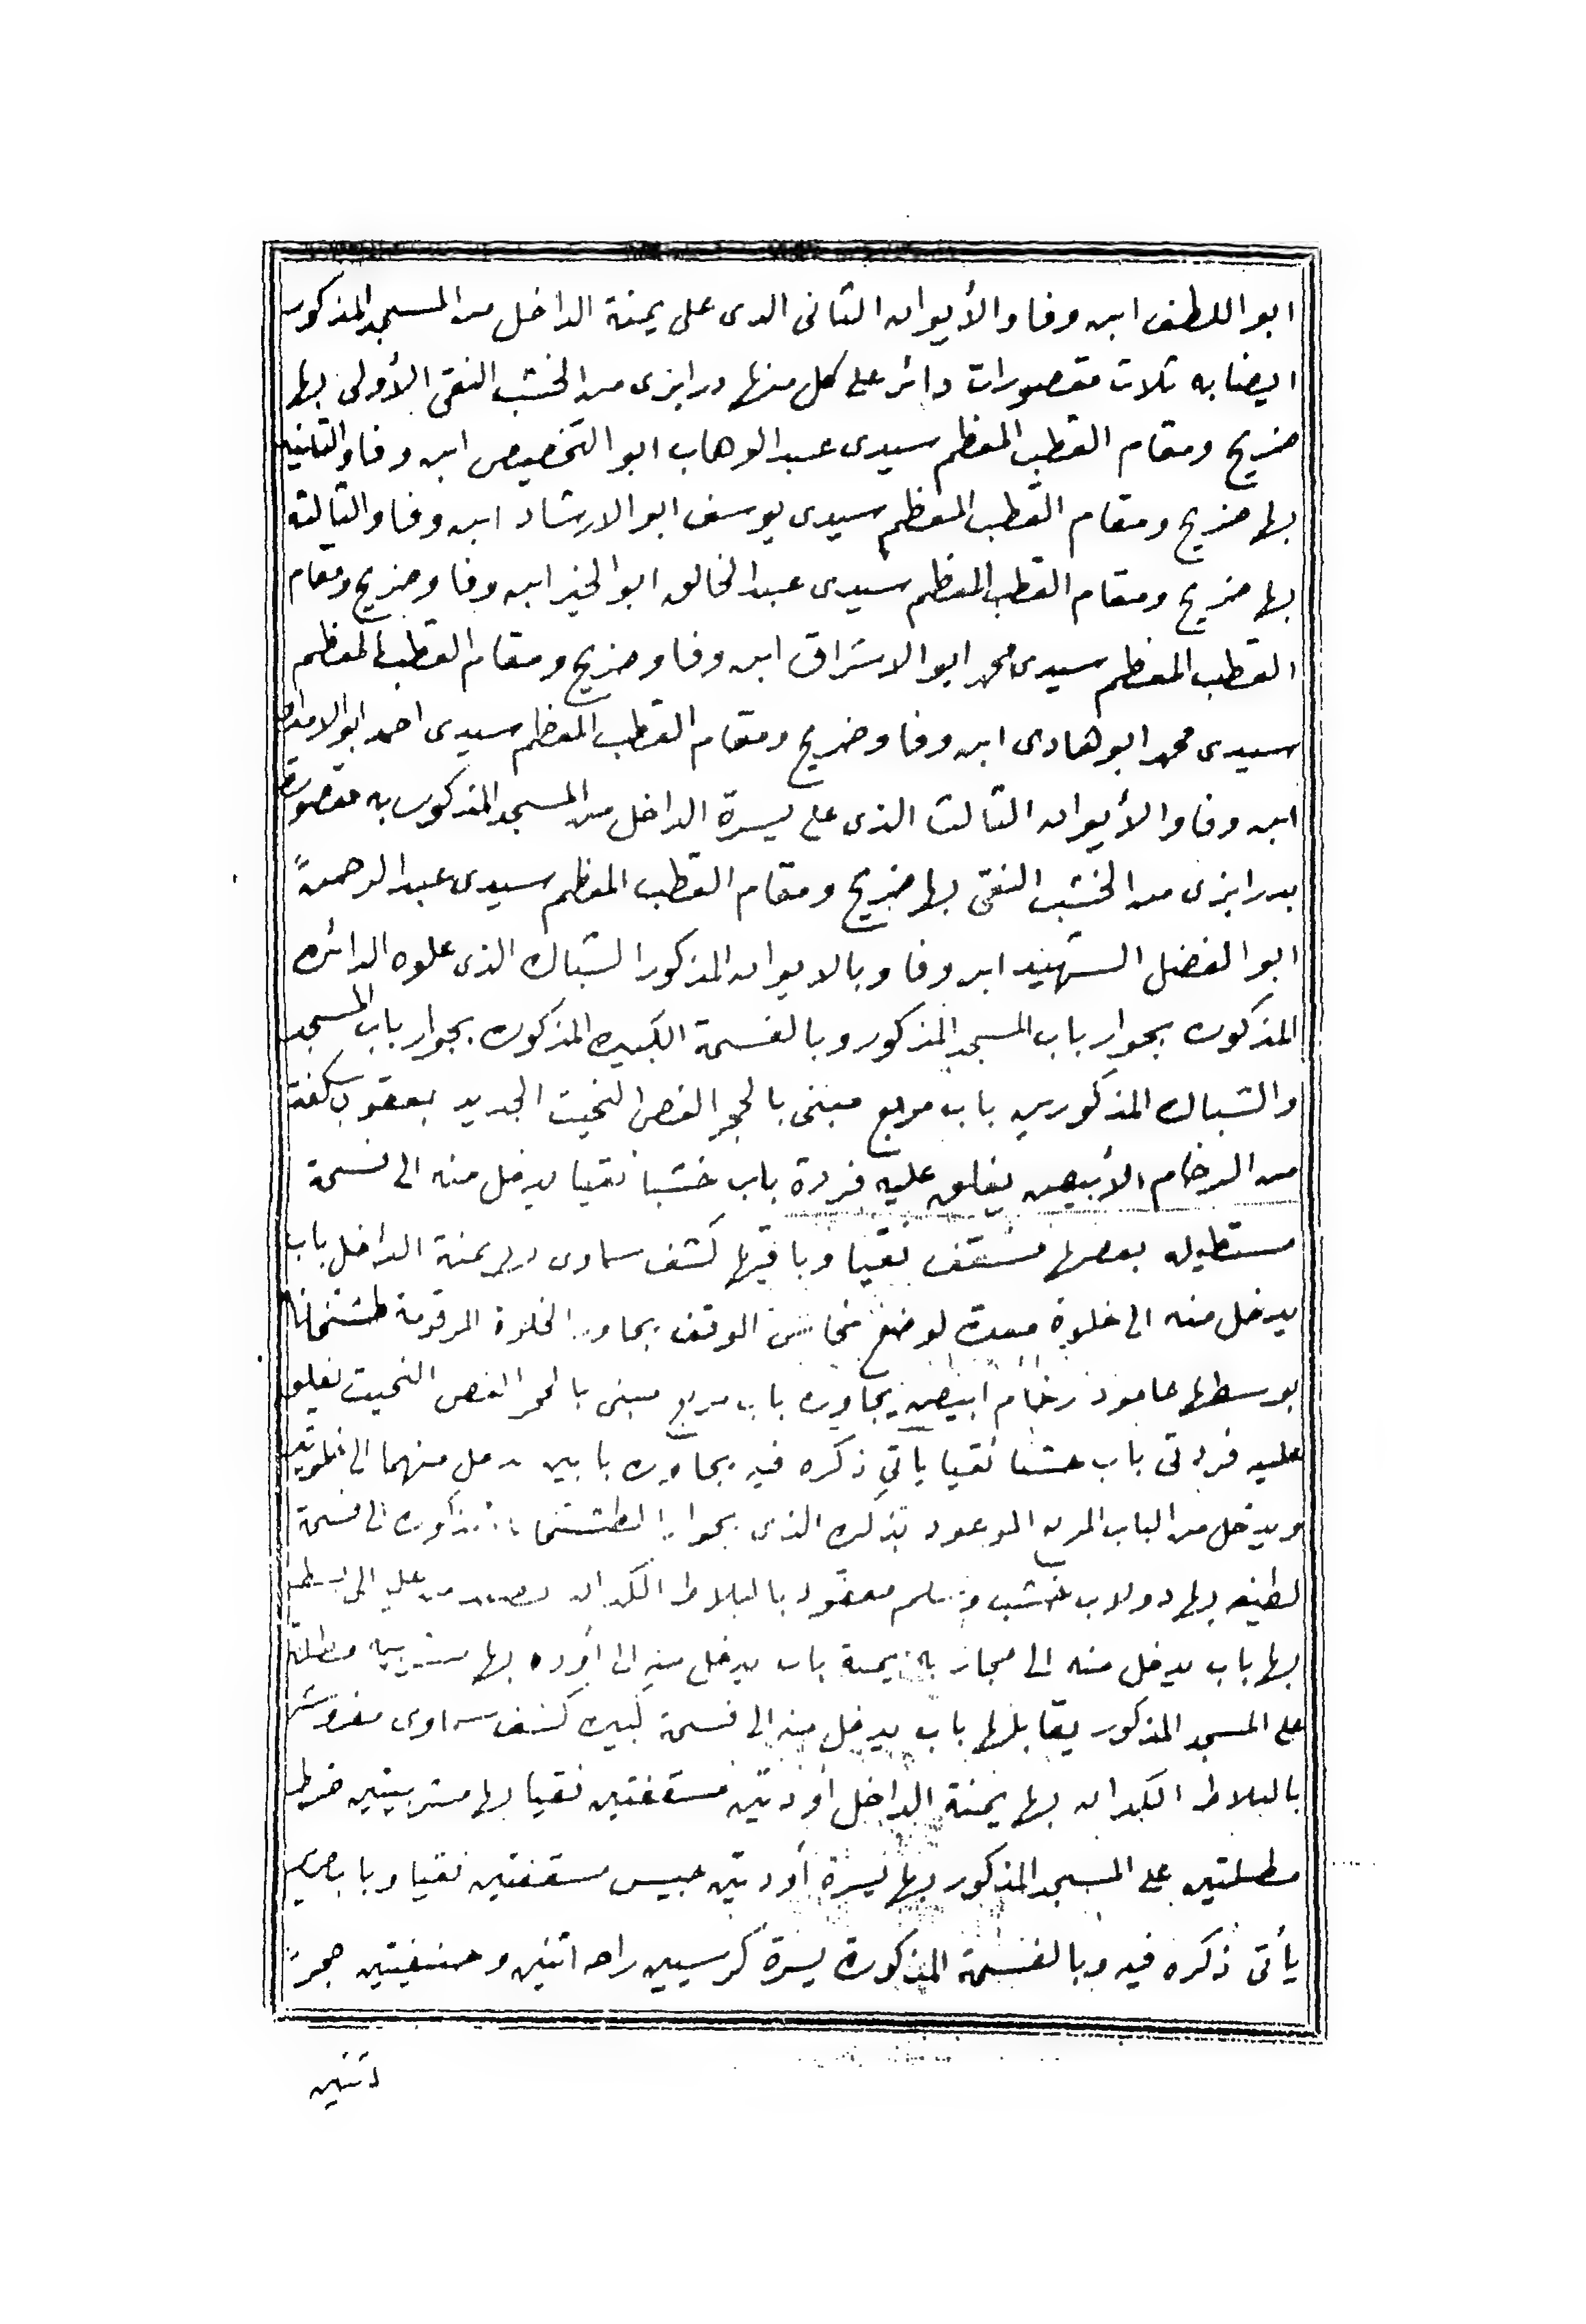 ابو اللطف ابن وفا والأيوان الثانى الدى على يمنة الداخل من المسجد المذكور
ايضا به ثلاث مقصورات دائر على كل منها درابزى من الخشب النقى الأولى بها
ضريح ومقام القطب المعظم سيدى عبد الوهاب ابو التخصيص ابن وفا والثانيه
بها ضريح ومقام القطب المعظم سيدى يوسف ابو الارشاد ابن وفا والثالثه
بها ضريح ومقام القطب المعظم سيدى عبد الخالق ابو الخير ابن وفا وضريح ومقام
القطب المعظم سيدى محمد ابو الاشراق ابن وفا وضريح ومقام القطب المعظم
سيدى محمد ابو هادى ابن وفا وضريح ومقام القطب المعظم سيدى احمد ابو الامداد
ابن وفا والأيوان الثالث الذى على يسرة الداخل من المسجد المذكور به مقصورة
بدرابزى من الخشب النقى بها ضريح ومقام القطب المعظم سيدى عبد الرحمن
ابو الفضل الشهيد ابن وفا وبالايوان المذكور الشباك الذى علوه الدائره
المذكوره بجوار باب المسجد المذكور وبالفسحة الكبيره المذكوره بجوار باب المسجد
والشباك المذكورين باب مربع مبنى بالحجر الفص النحيت الجديد بعقوب سكفة
من الرخام الأبيض يغلق عليه فردة باب خشبا نقيا يدخل منه الى فسحة
مستطيله بعضها مسقف نقيا وباقيها كشف سماوى بها يمنة الداخل باب
يدخل منه الى خلوة معدة لوضع نحاس الوقف بجاور الخلوة المرقومة طشتخانه
بوسطها عامود رخام ابيض يجاوره باب مربع مبنى بالحجر الفص النحيت يغلق
عليه فردتى باب خشبا نقيا يأتى ذكره فيه بجاوره بابين يدخل منهما الى خلوتين
ويدخل من الباب المربع الموعود بذكره الذى بجوار الطشتخانه المذكوره الى فسحة
لطيفه بها دولاب خشب وسلم معقود بالبلاط الكدان يصعد من عليه الى بسطة
بها باب يدخل منه الى مجاز به يمنة باب يدخل منه الى أوده بها مشربيه مطلة
على المسجد المذكور يقابلها باب يدخل منه الى فسحة كبيره كشف سماوى مفروشة
بالبلاط الكدان بها يمنة الداخل أودتين مسقفتين نقيا بها مشربيتين خرط
مطلتين على المسجد المذكور بها يسرة أودتين حبيس مسقفتين نقيا وباب
يأتى ذكره فيه وبالفسحة المذكورة يسرة كرسيين راحه اثنين وحنفيتين حجر
اثنين